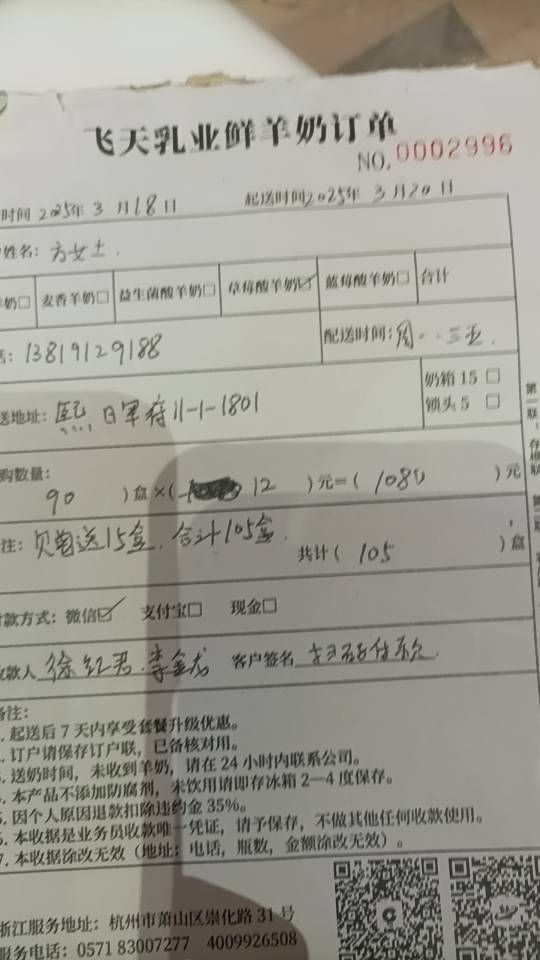 飞天乳业鲜羊奶订单
NO.0002996
时间 2025年 3 月18日 起送时间2025年 3 月20日
姓名：方女士.
奶□ 麦香羊奶□ 益生菌酸羊奶□ 草莓酸羊奶☑ 蓝莓酸羊奶□ 合计
：13819129188 配送时间：周一.三.五.
送地址：熙 11-1-1801 奶箱 15 □
锁头 5 □
购数量：
90 ）盒×（ 12 ）元=（ 1080 ）元
注： 送15盒. 合计105盒.
共计（ 105 ）盒
付款方式：微信☑ 支付宝□ 现金□
收款人 徐红君.李金龙 客户签名
备注：
1. 起送后 7 天内享受套餐升级优惠。
2. 订户请保存订户联，已备核对用。
3. 送奶时间，未收到羊奶，请在 24 小时内联系公司。
4. 本产品不添加防腐剂，未饮用请即存冰箱 2—4 度保存。
5. 因个人原因退款扣除违约金 35%。
6. 本收据是业务员收款唯一凭证，请予保存，不做其他任何收款使用。
7. 本收据涂改无效（地址：电话，瓶数，金额涂改无效）。
浙江服务地址：杭州市萧山区崇化路 31 号
服务电话：0571 83007277 4009926508